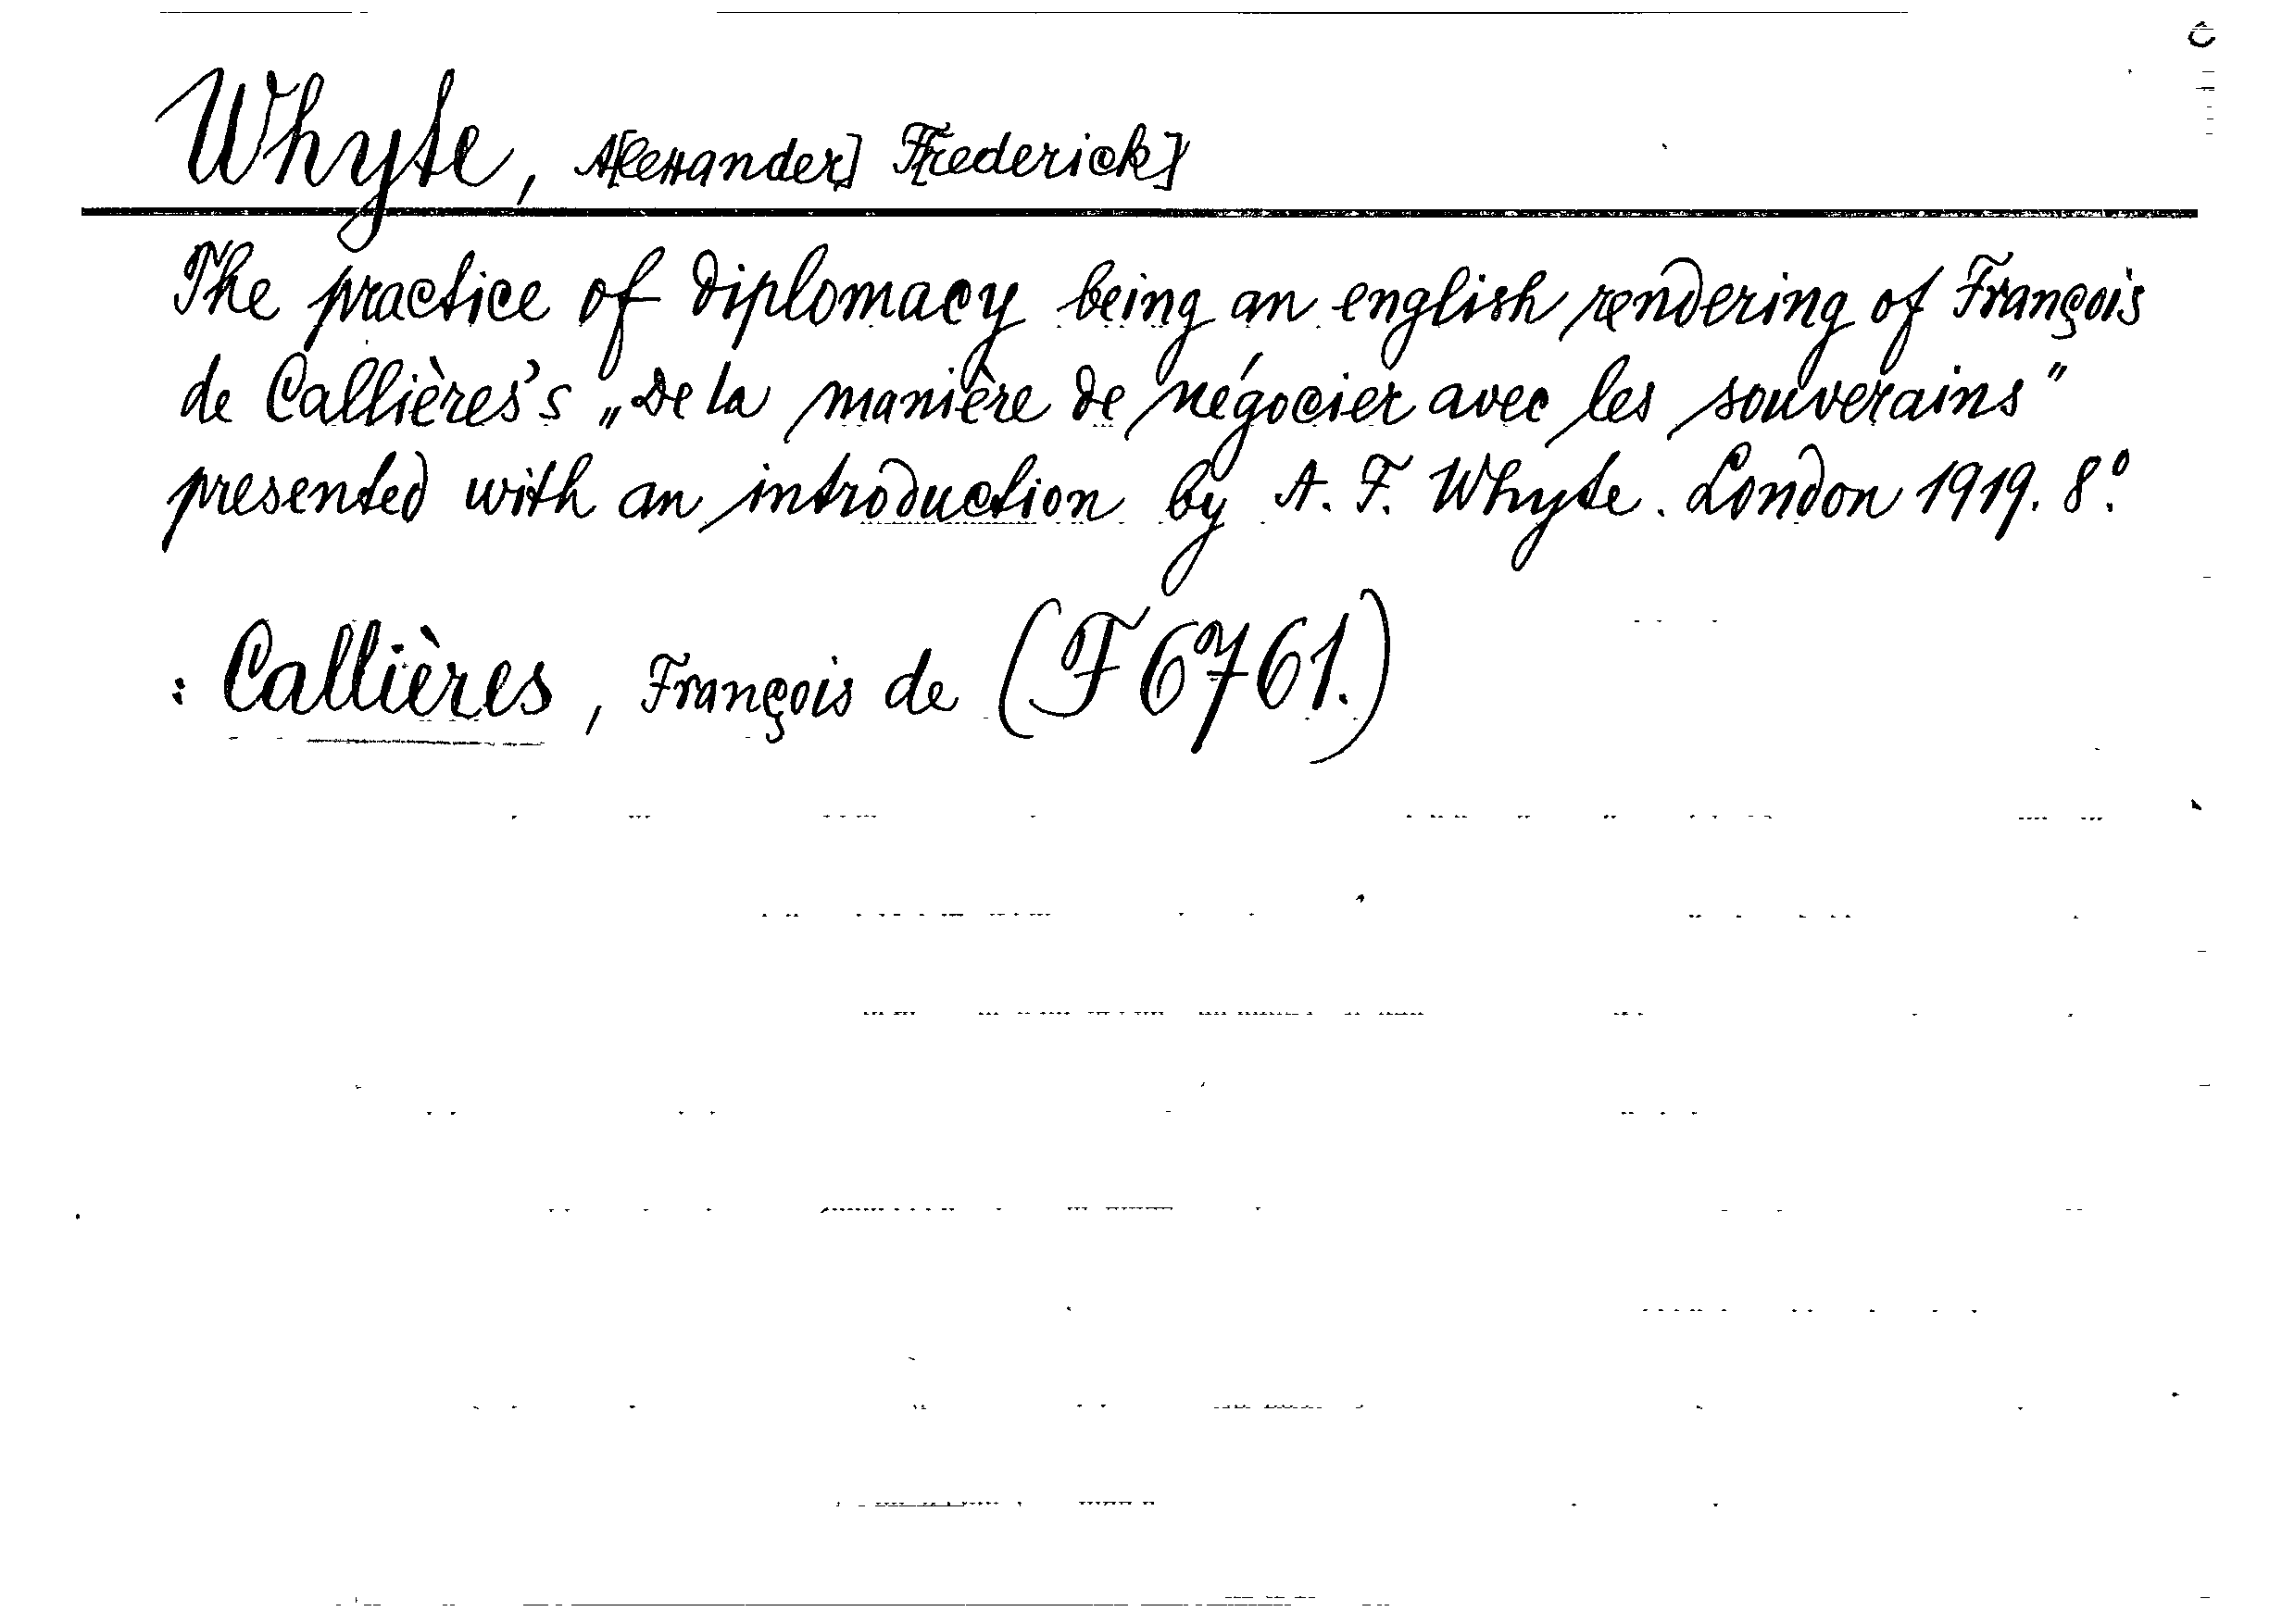 Whyte, A[lexander] F[rederick]
The practice of diplomacy being an english rendering of François
de Callières's „De la manière de négocier avec les souverains"
presented with an introduction by A. F. Whyte. London 1919. 8°.
: Callières, François de (F 6761.)